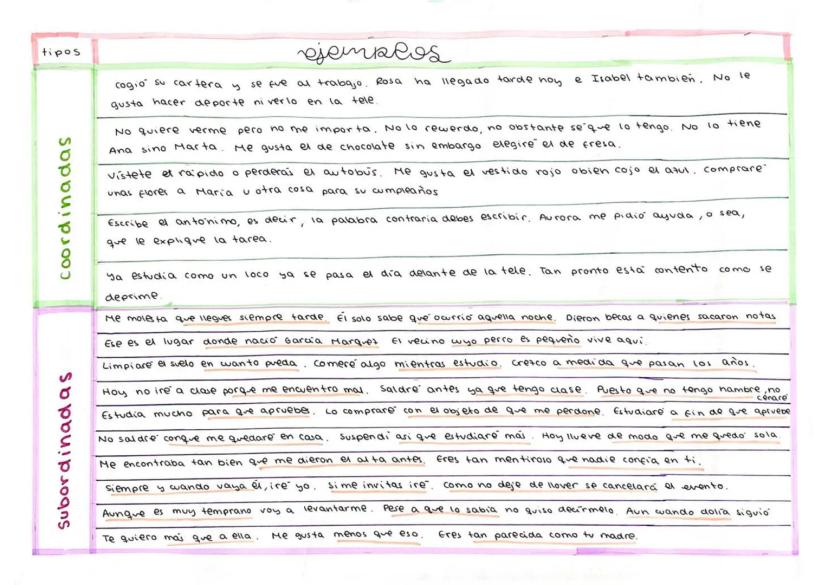 tipos
ejemplos
coordinadas
cogió su cartera y se fue al trabajo. Rosa ha llegado tarde hoy e Isabel también. No le
gusta hacer deporte ni verlo en la tele.
No quiere verme pero no me importa. No lo recuerdo, no obstante sé que lo tengo. No lo tiene
Ana sino Marta. Me gusta el de chocolate sin embargo elegiré el de fresa.
Vístete el rápido o perderás el autobús. Me gusta el vestido rojo o bien cojo el azul. Compraré
unas flores a María u otra cosa para su cumpleaños
Escribe el antónimo, es decir, la palabra contraria debes escribir. Aurora me pidió ayuda, o sea,
que le explique la tarea.
Ya estudia como un loco ya se pasa el día delante de la tele. Tan pronto está contento como se
deprime.
subordinadas
Me molesta que llegues siempre tarde. Él solo sabe qué ocurrió aquella noche. Dieron becas a quienes sacaron notas
Ese es el lugar donde nació García Marquez El vecino cuyo perro es pequeño vive aquí.
Limpiaré el suelo en cuanto pueda. Comeré algo mientras estudio. Crezco a medida que pasan los años.
Hoy no iré a clase porque me encuentro mal. Saldré antes ya que tengo clase. Puesto que no tengo hambre, no
cenaré
Estudia mucho para que apruebes. Lo compraré con el objeto de que me perdone. Estudiaré a fin de que apruebe
No saldré conque me quedaré en casa. Suspendí así que estudiaré más. Hoy llueve de modo que me quedo sola.
Me encontraba tan bien que me dieron el alta antes. Eres tan mentiroso que nadie confía en ti.
Siempre y cuando vaya él, iré yo. Si me invitas iré. Como no deje de llover se cancelará el evento.
Aunque es muy temprano voy a levantarme. Pese a que lo sabía no quiso decírmelo. Aun cuando dolía siguió
Te quiero más que a ella. Me gusta menos que eso. Eres tan parecida como tu madre.